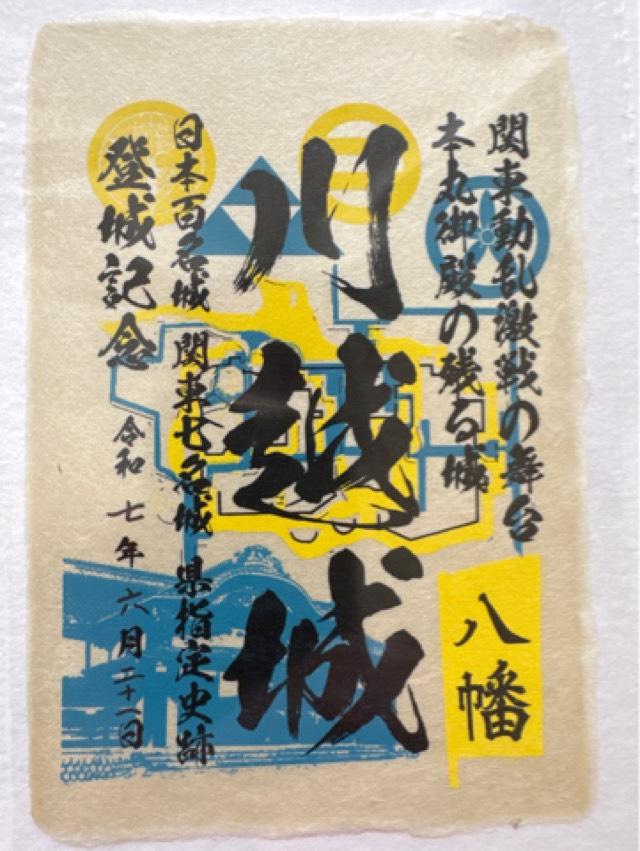 関東動乱激戦の舞台
本丸御殿の残る城
川越城
八幡
日本百名城 関東七名城 県指定史跡
登城記念
令和七年六月二十一日